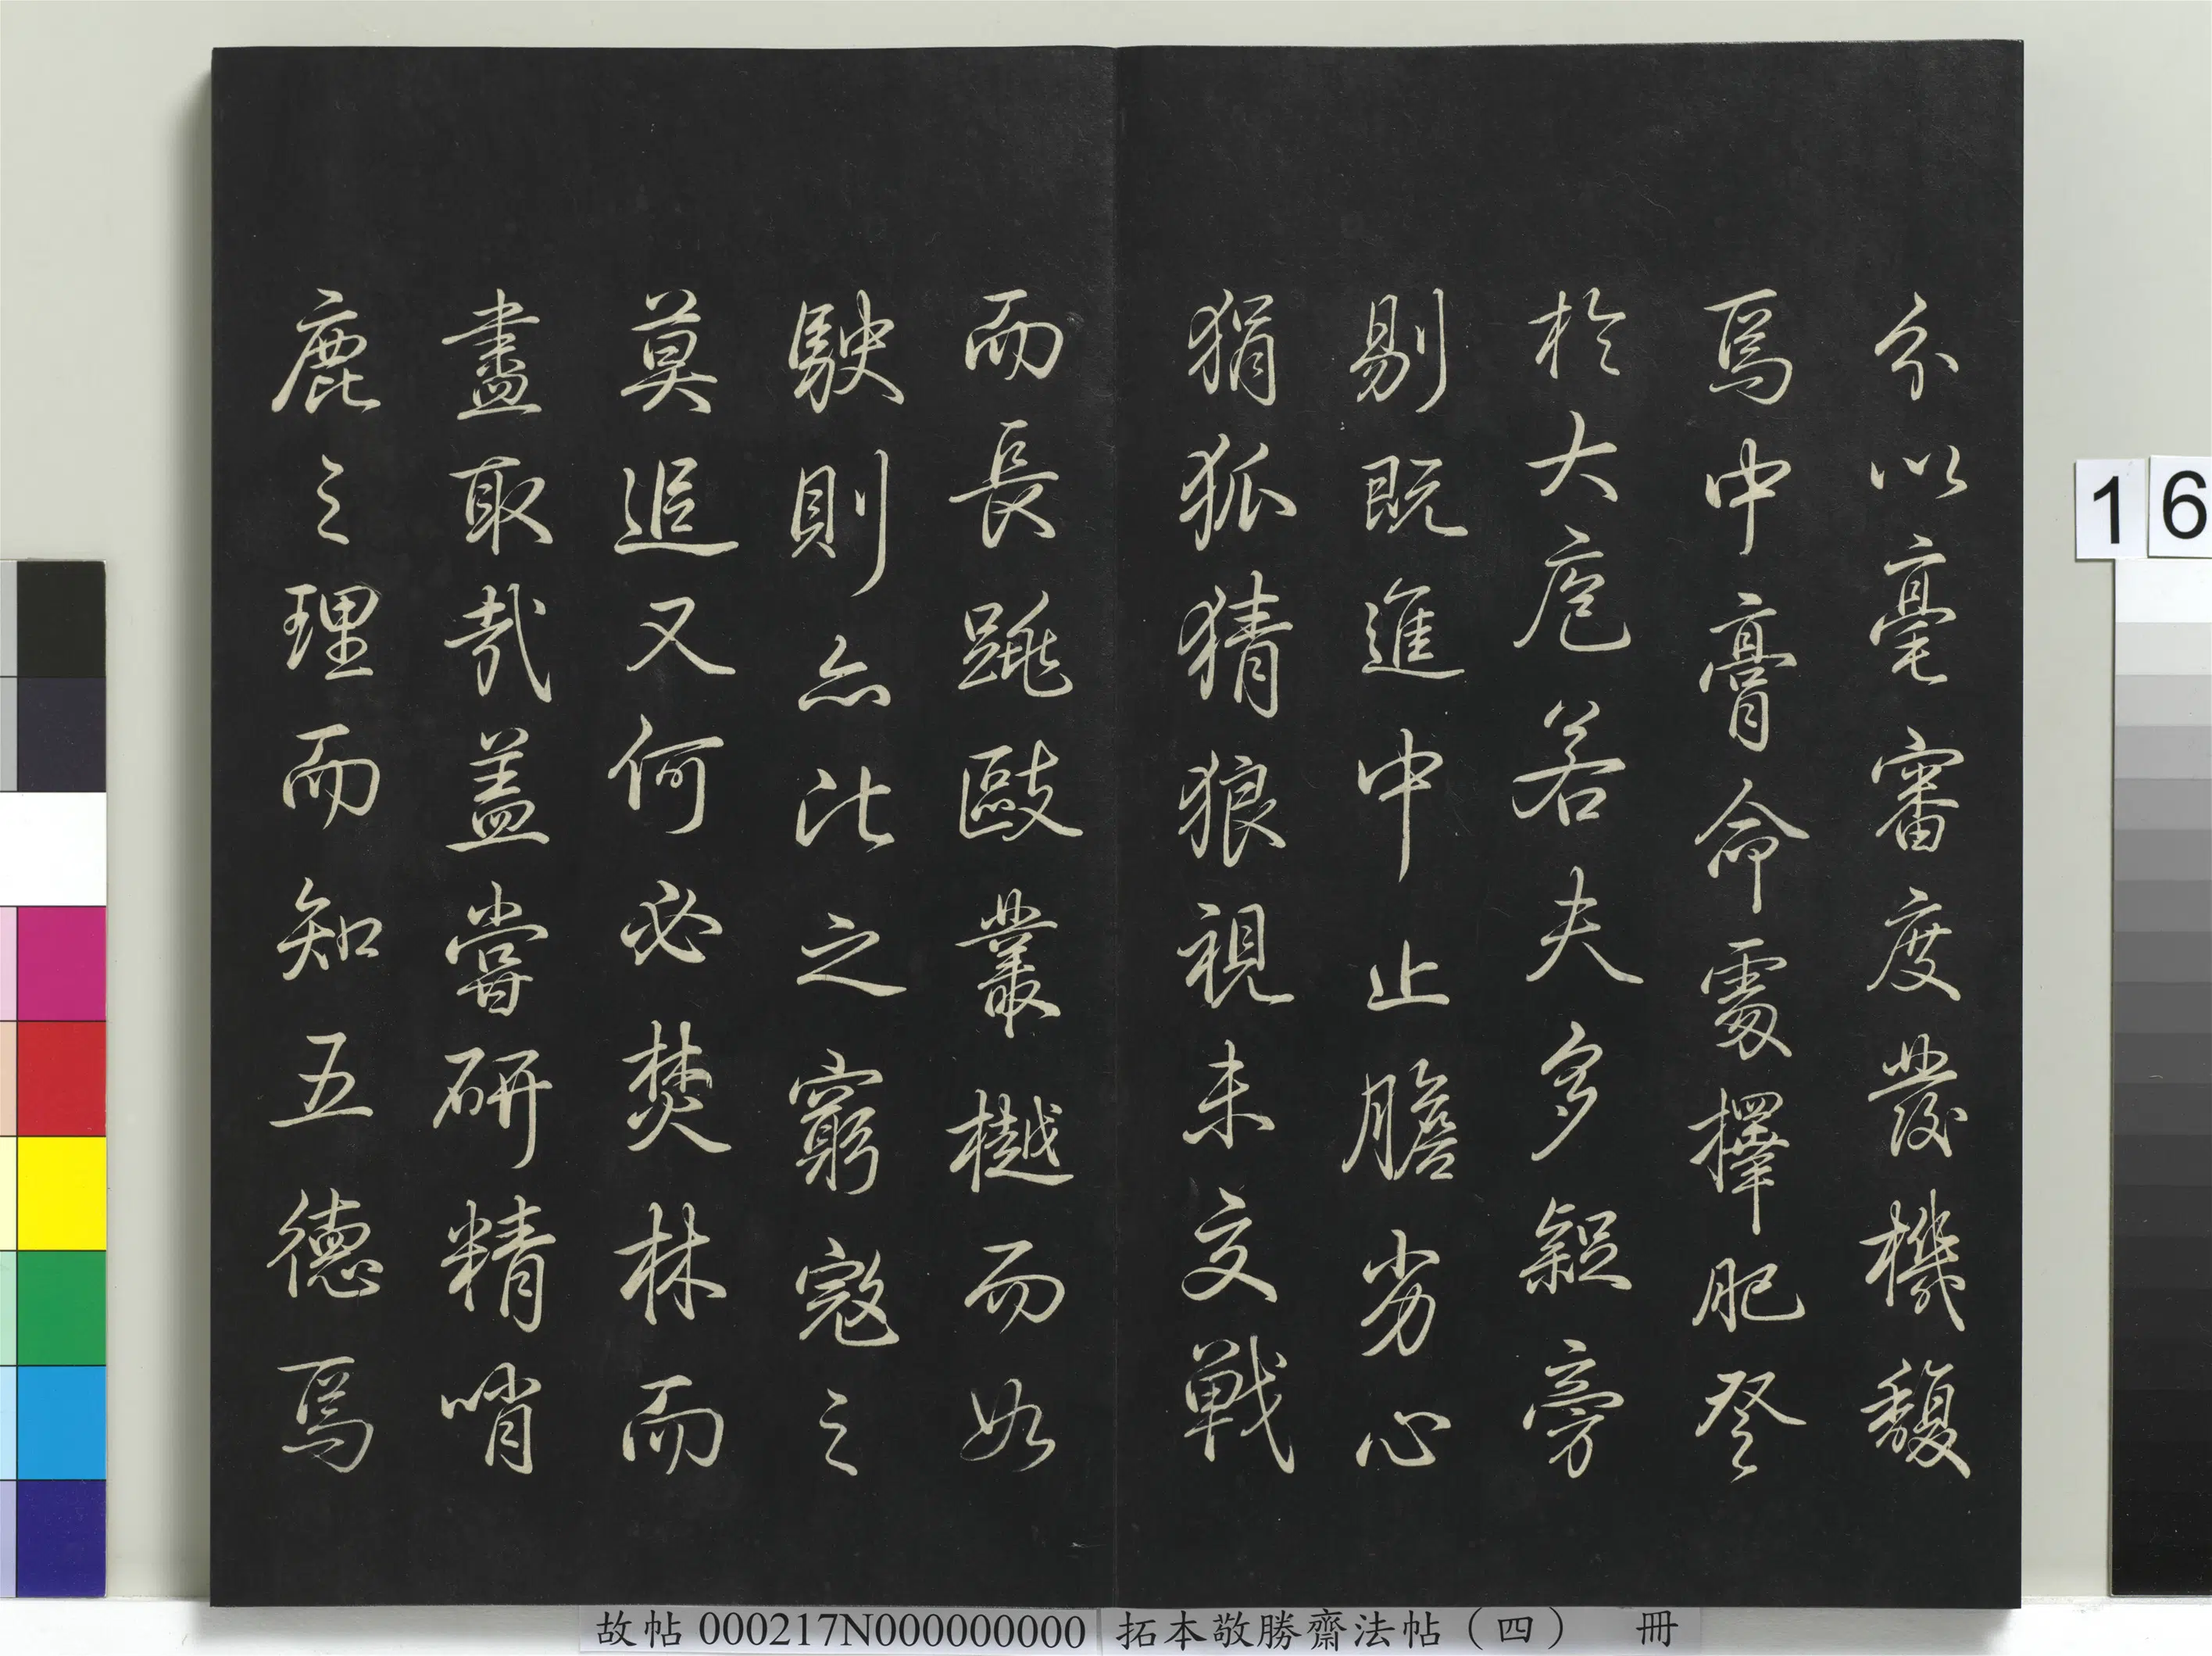 分以毫審度發機馥
焉中膏命處擇肥登
於大庖若夫多旁
剔既進中止膽劣心
狷狐猜狼視未交戰
而長跳毆叢樾而如
駛則亦比之窮寇之
莫追又何必焚林而
盡取哉盖嘗研精哨
鹿之理而知五德焉
16
故帖 000217N000000000 拓本敬勝齋法帖（四） 冊